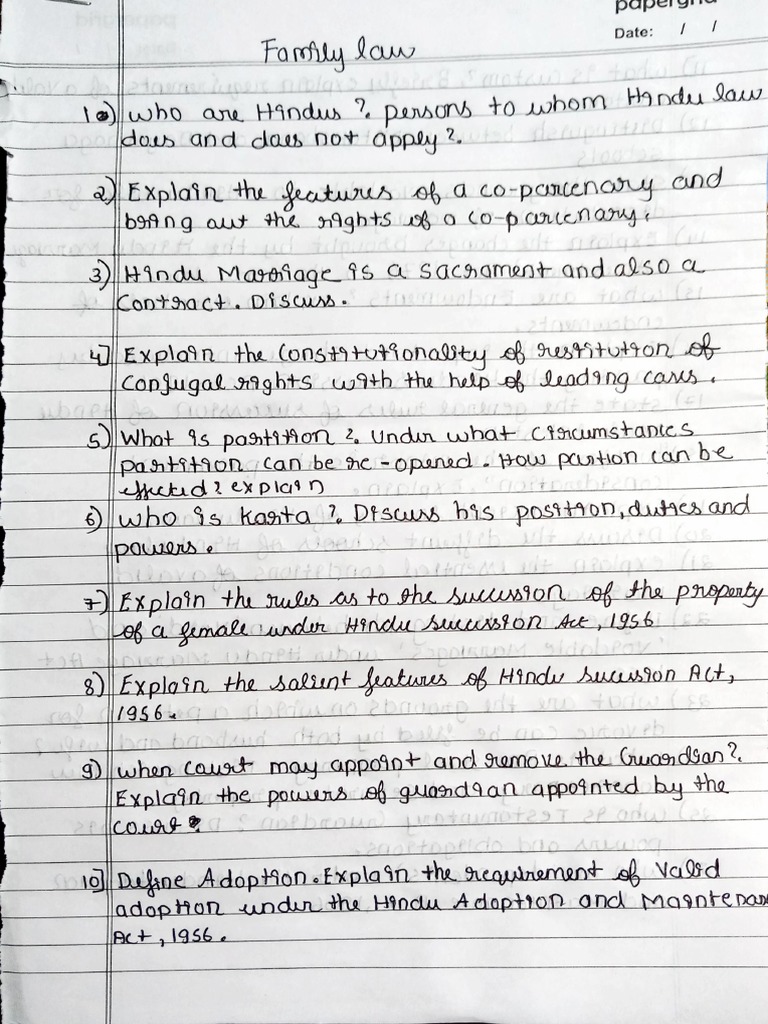 papergrid
Date: / /
Family law
1) who are Hindus ?. persons to whom Hindu law
does and does not apply ?.
2) Explain the features of a co-parcenary and
bring out the rights of a co-parcenary.
3) Hindu Marriage is a sacrament and also a
contract. Discuss.
4] Explain the constitutionality of restitution of
conjugal rights with the help of leading cases.
5) What is partition ?. Under what circumstances
partition can be re-opened. How partion can be
effected? explain
6) who is karta ?. Discuss his position, duties and
powers.
7) Explain the rules as to the succession of the property
of a female under Hindu succession Act, 1956
8) Explain the salient features of Hindu sucession Act,
1956.
9) when court may appoint and remove the Guardian ?.
Explain the powers of guardian appointed by the
court ?
10] Define Adoption. Explain the requirement of valid
adoption under the Hindu Adoption and Maintenan
Act, 1956.